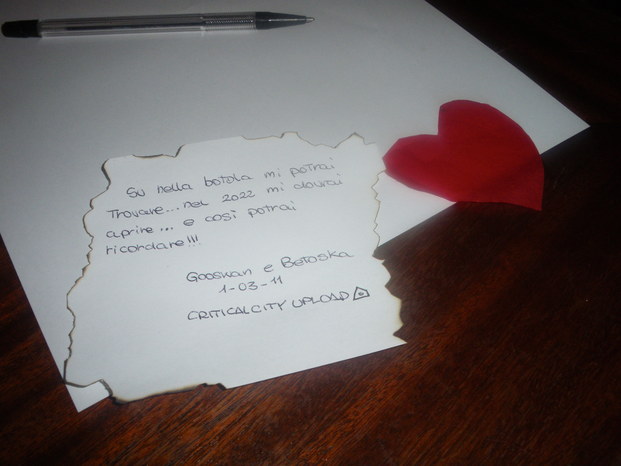 Su nella botola mi potrai
trovare... nel 2022 mi dovrai
aprire... e così potrai
ricordare!!!
Gooswan e Betoska
1-03-11
CRITICALCITY UPLOAD